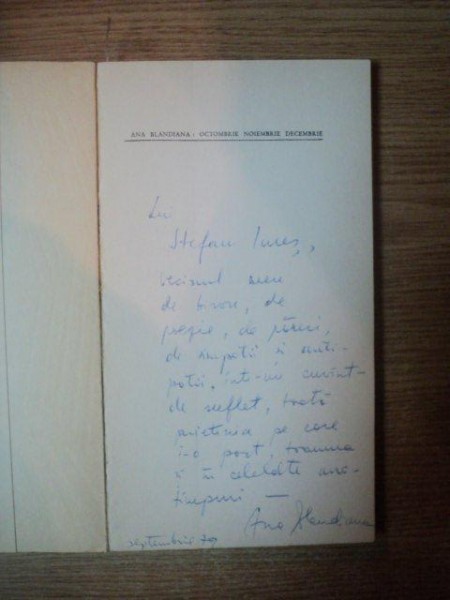 ANA BLANDIANA: OCTOMBRIE NOIEMBRIE DECEMBRIE
Lui
Ștefan Iureș,
vecinul meu
de birou, de
poezie, de păreri,
de simpatii și anti-
patii, într-un cuvînt -
de suflet, toată
prietenia pe care
i-o port, toamna
și în celelalte ano-
timpuri —
Ana Blandiana
septembrie 79